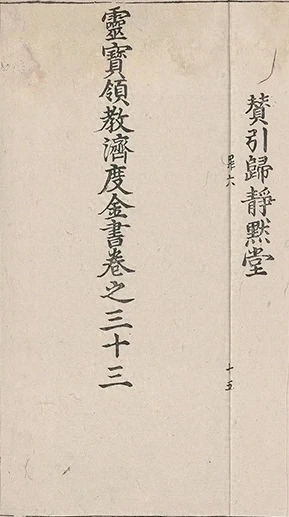 贊引歸靜默堂
罪六
十五
靈寶領教濟度金書卷之三十三